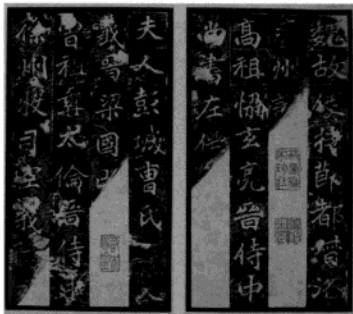 魏故使持節都督洛
州
高祖協玄亮晉侍中
尚書左僕
夫人彭城曹氏父
羲晉梁國
曾祖彝太倫晉侍中
徐州牧司空義